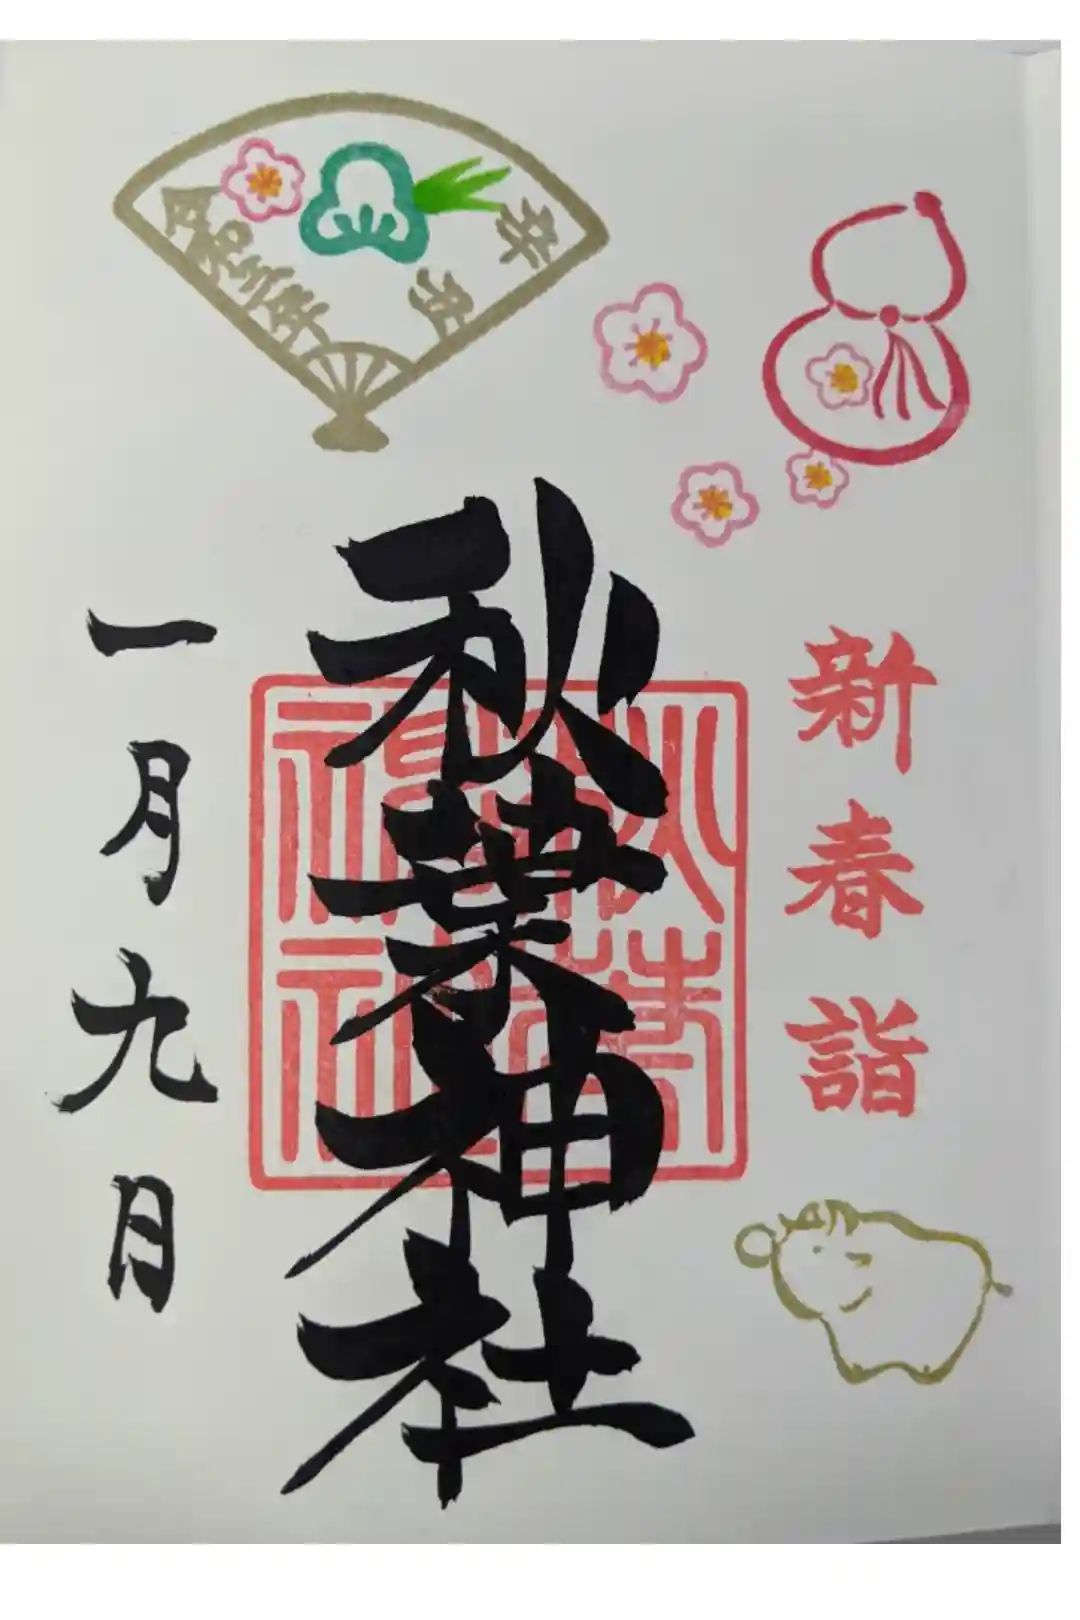 令和三年
辛丑
新春詣
秋葉神社
一月九日